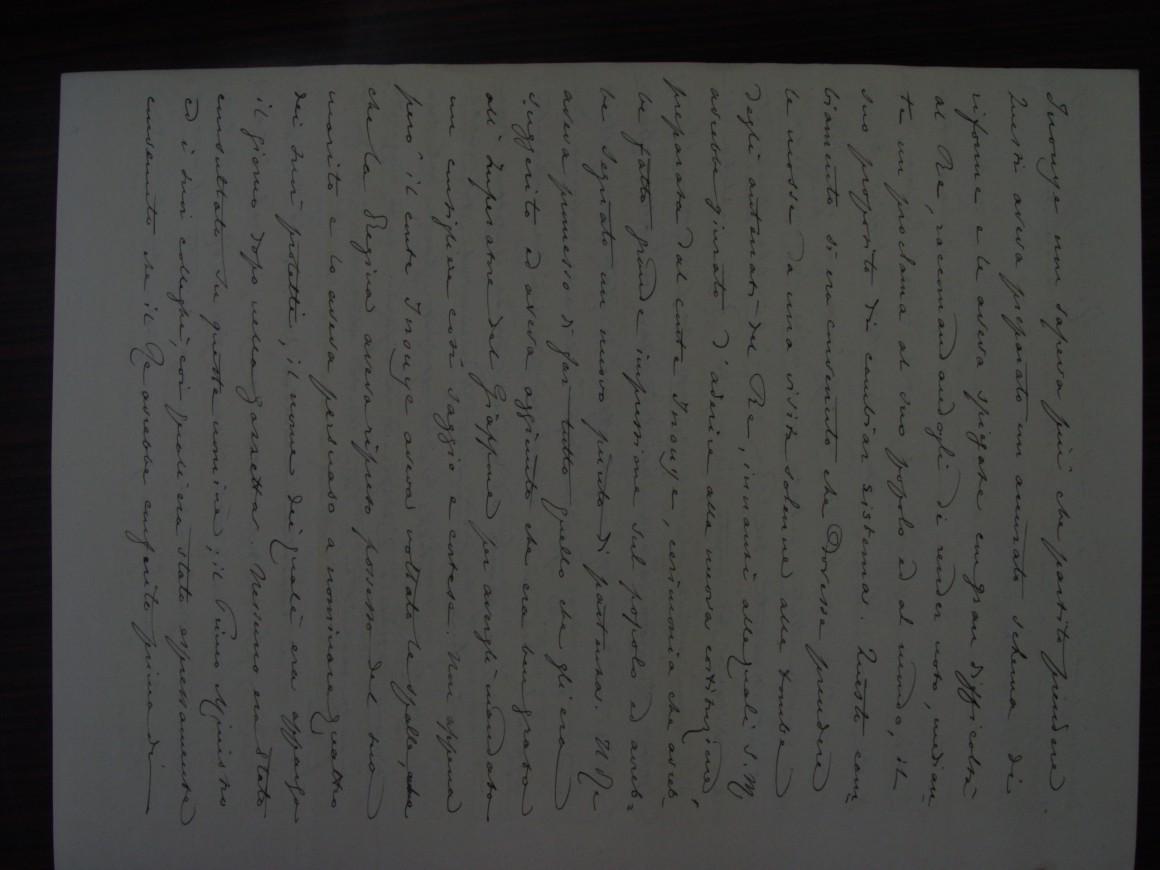 Inouye non sapeva più che partito prendere.
Questi aveva preparato un accurato schema di
riforme e le aveva spiegate con gran difficoltà
al Re, raccomandandogli di render noto, median-
te un proclama al suo popolo ed al mondo, il
suo proposito di cambiar sistema. Questo cam-
biamento si era convenuto che dovesse prendere
le mosse da una visita solenne alle tombe
degli antenati del Re, innanzi alle quali S.M.
avrebbe giurato d'aderire alla nuova costituzione,
preparata dal conte Inouye, cerimonia che avreb-
be fatto grande impressione sul popolo ed avreb-
be segnato un nuovo punto di partenza. Il Re
aveva promesso di far tutto quello che gli era
suggerito ed aveva aggiunto che era ben grato
all'Imperatore del Giappone per avergli mandato
un consigliere così saggio e cortese. Non appena
però il conte Inouye aveva voltato le spalle,
che la Regina aveva ripreso possesso del suo
marito e lo aveva persuaso a nominare quattro
dei suoi protetti, il nome dei quali era apparso
il giorno dopo nella gazzetta. Nessuno era stato
consultato su queste nomine; il Primo Ministro
ed i suoi colleghi, coi quali era stato espressamente
convenuto che il Re avrebbe conferito prima di